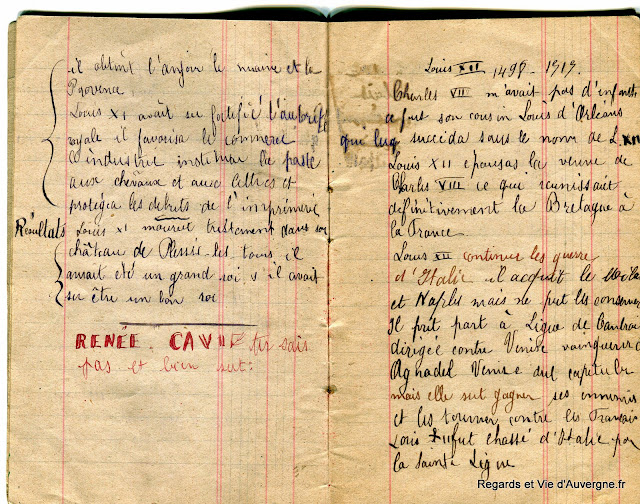 il obtint l'anjou le maine et la
Provence,
Louis XI avait su fortifié l'autorité
royale il favorisa le commerce
l'industrie institua la poste
aux chevaux et aux lettres et
protégea les débuts de l'imprimerie
Résultats Louis XI mourut tristement dans son
château de Plessis-les tours il
aurait été un grand roi s'il avait
su être un bon roi
RENÉE. CAVIE
pas et bien sut:
Louis XII 1498 - 1515.
Charles VII n'avait pas d'enfants
ce fut son cousin Louis d'Orléans
qui luq succéda sous le nom de L XII
Louis XII épousas la veuve de
Charles VIII ce qui réunissait
définitivement la Bretagne à
la France.
Louis XII continue les guerre
d'Italie il acquit le Mila
et Naples mais ne put les conserver
Il prit part à Ligue de Cambrai
dirigée contre Venise
Agnadel Venise dut capituler
mais elle sut gagner ses ennemis
et les tourner contre les Français
Louis XII fut chassé d'Italie par
la sainte Ligue
Regards et Vie d'Auvergne.fr